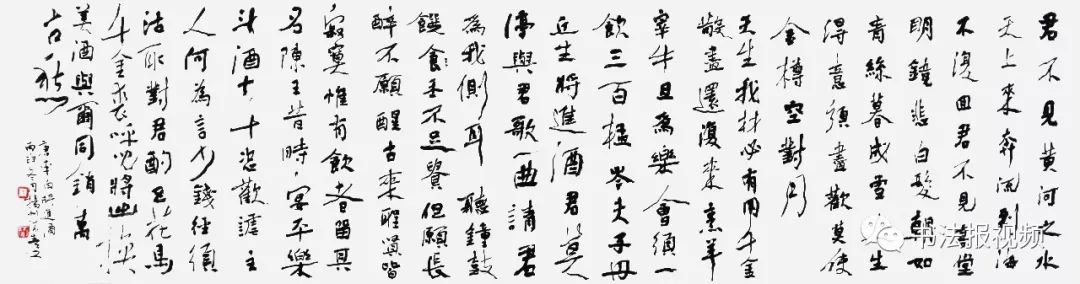 君不見黃河之水
天上來奔流到海
不復回君不見高堂
明鏡悲白髮朝如
青絲暮成雪人生
得意須盡歡莫使
金樽空對月
天生我材必有用千金
散盡還復來烹羊
宰牛且為樂會須一
飲三百杯岑夫子丹
丘生將進酒君莫
停與君歌一曲請君
為我側耳聽鐘鼓
饌食玉不足貴但願長
醉不願醒古來聖賢皆
寂寞惟有飲者留其
名陳王昔時宴平樂
斗酒十千恣歡謔主
人何為言少錢徑須
沽取對君酌五花馬
千金裘呼兒將出換
美酒與爾同銷萬
古愁
將進酒
书法报视频